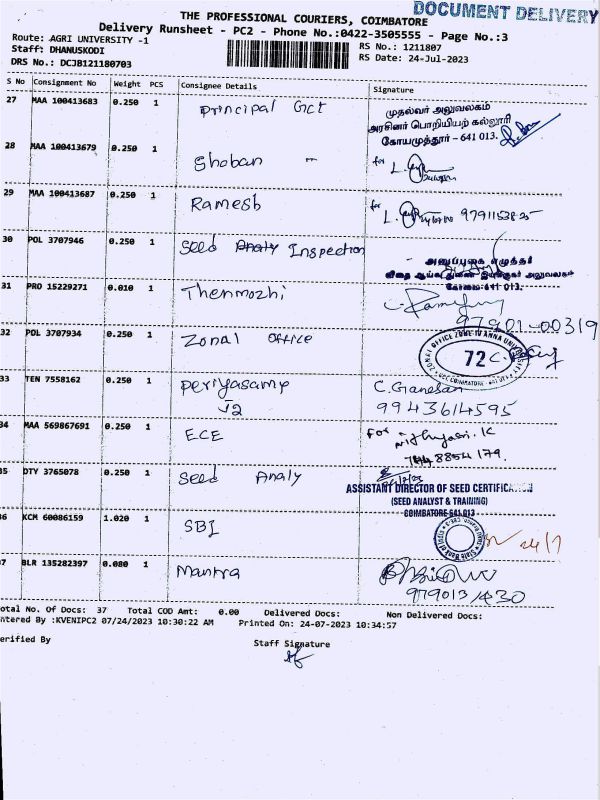 DOCUMENT DELIVERY
THE PROFESSIONAL COURIERS, COIMBATORE
Delivery Runsheet - PC2 - Phone No.:0422-3505555 - Page No.:3
Route: AGRI UNIVERSITY -1
RS No.: 1211807
Staff: DHANUSKODI
RS Date: 24-Jul-2023
DRS No.: DCJB121180703
S No Consignment No Weight PCS Consignee Details Signature
27 MAA 100413683 0.250 1 Principal Gct
முதல்வர் அலுவலகம்
அரசினர் பொறியியற் கல்லூரி
கோயமுத்தூர் – 641 013.
28 MAA 100413679 0.250 1 Shoban for L.
29 MAA 100413687 0.250 1 Ramesh for L.
30 POL 3707946 0.250 1 Seed Analy Inspection
அனுப்புகை எழுத்தர்
கோவை-641 013.
31 PRO 15229271 0.010 1 Thenmozhi
97901-00319
32 POL 3707934 0.250 1 Zonal Office
72
33 TEN 7558162 0.250 1 Periyasamy C. Ganesan
J2 9943614595
34 MAA 569867691 0.250 1 ECE For Nithyasri. K
8854179.
35 DTY 3765078 0.250 1 Seed Analy
ASSISTANT DIRECTOR OF SEED CERTIFICA
(SEED ANALYST & TRAINING)
COIMBATORE 641 013
36 KCM 60086159 1.020 1 SBI 24/7
37 BLR 135282397 0.080 1 Mantra
Total No. Of Docs: 37 Total COD Amt: 0.00 Delivered Docs: Non Delivered Docs:
Entered By :KVENIPC2 07/24/2023 10:30:22 AM Printed On: 24-07-2023 10:34:57
Verified By Staff Signature